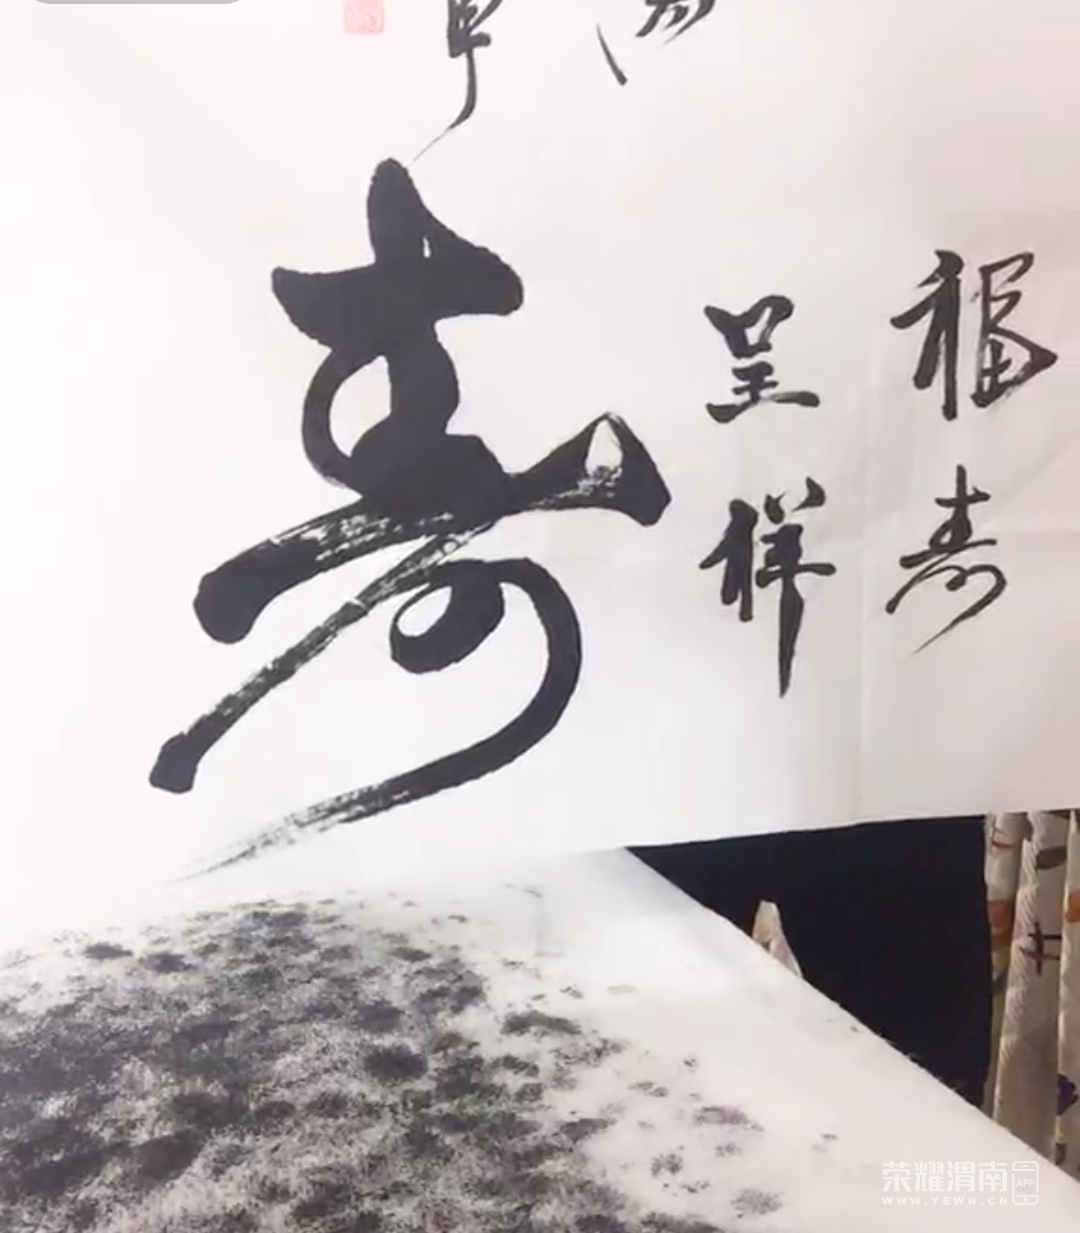 福寿
呈祥
寿
荣耀渭南
APP
WWW.YEWN.CN